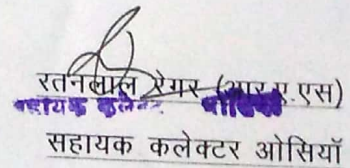 रतनलाल रेगर (आर.ए.एस)
सहायक कलेक्टर
सहायक कलेक्टर ओसियॉ